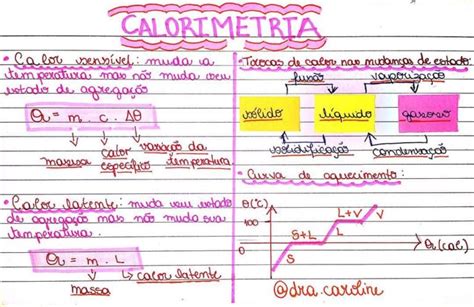 CALORIMETRIA
• Calor sensível: muda a
temperatura mas não muda seu
estado de agregação
Q = m . c . Δθ
massa
calor
específico
variação da
temperatura
• Calor latente: muda seu estado
de agregação mas não muda sua
temperatura.
Q = m . L
massa
calor latente
• Trocas de calor nas mudanças de estado:
fusão
vaporização
sólido
líquido
gasoso
solidificação
condensação
• Curva de aquecimento:
θ(°C)
100
S
S+L
L
L+V
V
Q (cal)
@dra.caroline